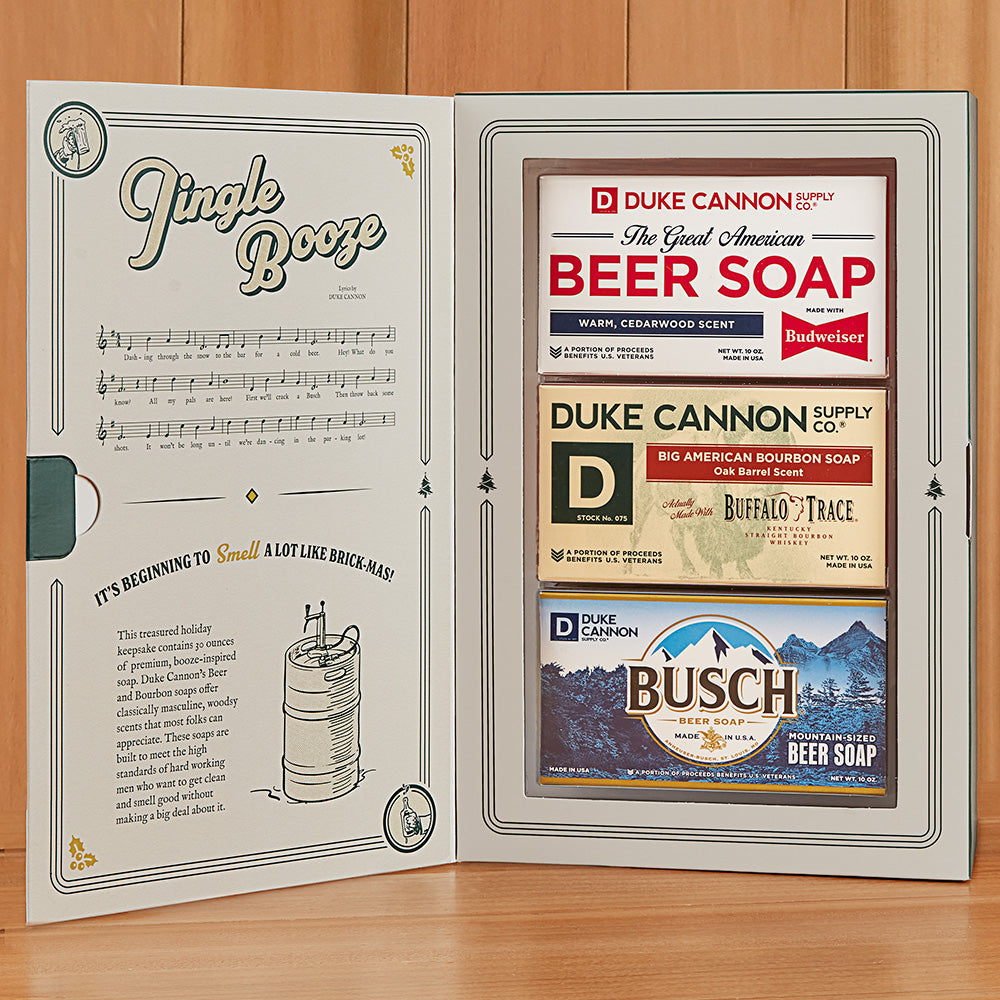 Jingle
Booze
Lyrics by
DUKE CANNON
Dash - ing through the snow to the bar for a cold beer. Hey! What do you
know? All my pals are here! First we'll crack a Busch Then throw back some
shots. It won't be long un - til we're dan - cing in the par - king lot!
IT'S BEGINNING TO Smell A LOT LIKE BRICK-MAS!
This treasured holiday
keepsake contains 30 ounces
of premium, booze-inspired
soap. Duke Cannon's Beer
and Bourbon soaps offer
classically masculine, woodsy
scents that most folks can
appreciate. These soaps are
built to meet the high
standards of hard working
men who want to get clean
and smell good without
making a big deal about it.
D DUKE CANNON SUPPLY CO.®
The Great American
BEER SOAP
WARM, CEDARWOOD SCENT
MADE WITH
Budweiser
A PORTION OF PROCEEDS
BENEFITS U.S. VETERANS
NET WT. 10 OZ.
MADE IN USA
DUKE CANNON SUPPLY CO.®
D
STOCK No. 075
BIG AMERICAN BOURBON SOAP
Oak Barrel Scent
Actually
Made With
BUFFALO TRACE
KENTUCKY
STRAIGHT BOURBON
WHISKEY
A PORTION OF PROCEEDS
BENEFITS U.S. VETERANS
NET WT. 10 OZ.
MADE IN USA
D DUKE
CANNON
SUPPLY CO.®
BUSCH
BEER SOAP
MADE IN U.S.A.
ANHEUSER-BUSCH, ST. LOUIS, MO
MOUNTAIN-SIZED
BEER SOAP
MADE IN USA
A PORTION OF PROCEEDS BENEFITS U.S. VETERANS
NET WT. 10 OZ.